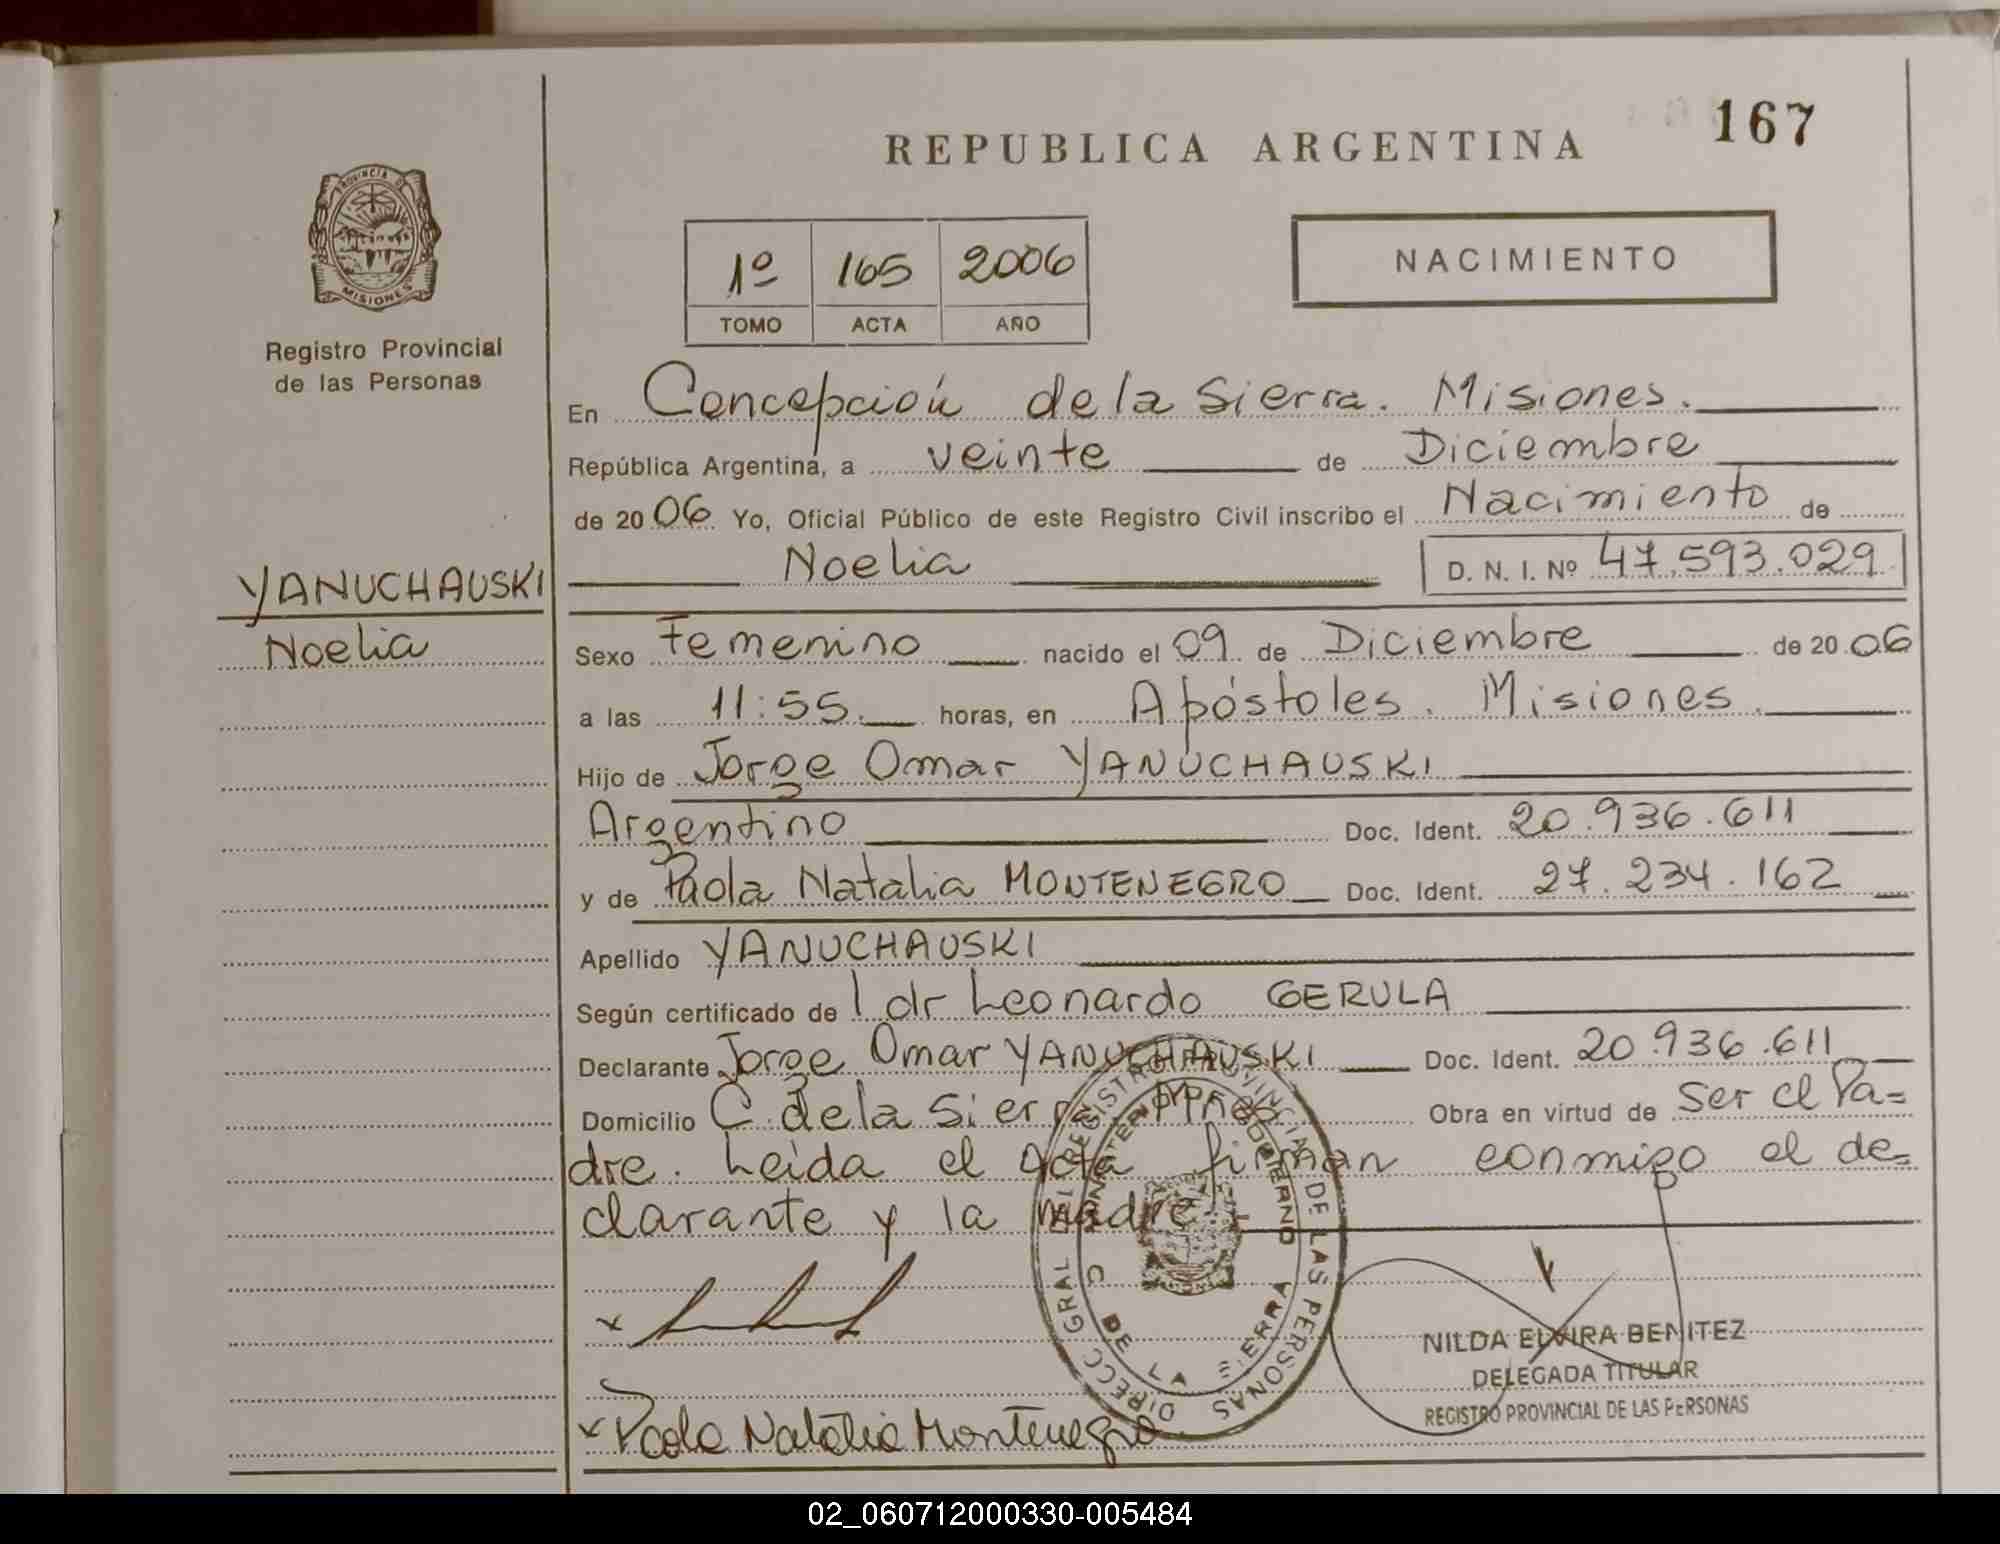 167
REPUBLICA ARGENTINA
PROVINCIA DE
MISIONES
Registro Provincial
de las Personas
NACIMIENTO
1º 165 2006
TOMO ACTA AÑO
En Concepción de la Sierra. Misiones.
República Argentina, a veinte de Diciembre
de 2006 Yo, Oficial Público de este Registro Civil inscribo el Nacimiento de
Noelia D. N. I. Nº 47.593.029
YANUCHAUSKI
Noelia
Sexo Femenino nacido el 09 de Diciembre de 2006
a las 11:55. horas, en Apóstoles. Misiones.
Hijo de Jorge Omar YANUCHAUSKI
Argentino Doc. Ident. 20.936.611
y de Paola Natalia MONTENEGRO Doc. Ident. 27.234.162
Apellido YANUCHAUSKI
Según certificado de l dr Leonardo GERULA
Declarante Jorge Omar YANUCHAUSKI Doc. Ident. 20.936.611
Domicilio C. de la Sierra Obra en virtud de ser el Pa=
dre. Leída el acta firman conmigo el de=
clarante y la madre
DIRECC GRAL DEL REGISTRO PROVINCIAL DE LAS PERSONAS
GOBIERNO
C DE LA SIERRA
NILDA ELVIRA BENITEZ
DELEGADA TITULAR
REGISTRO PROVINCIAL DE LAS PERSONAS
x Paola Natalia Montenegro
02_060712000330-005484